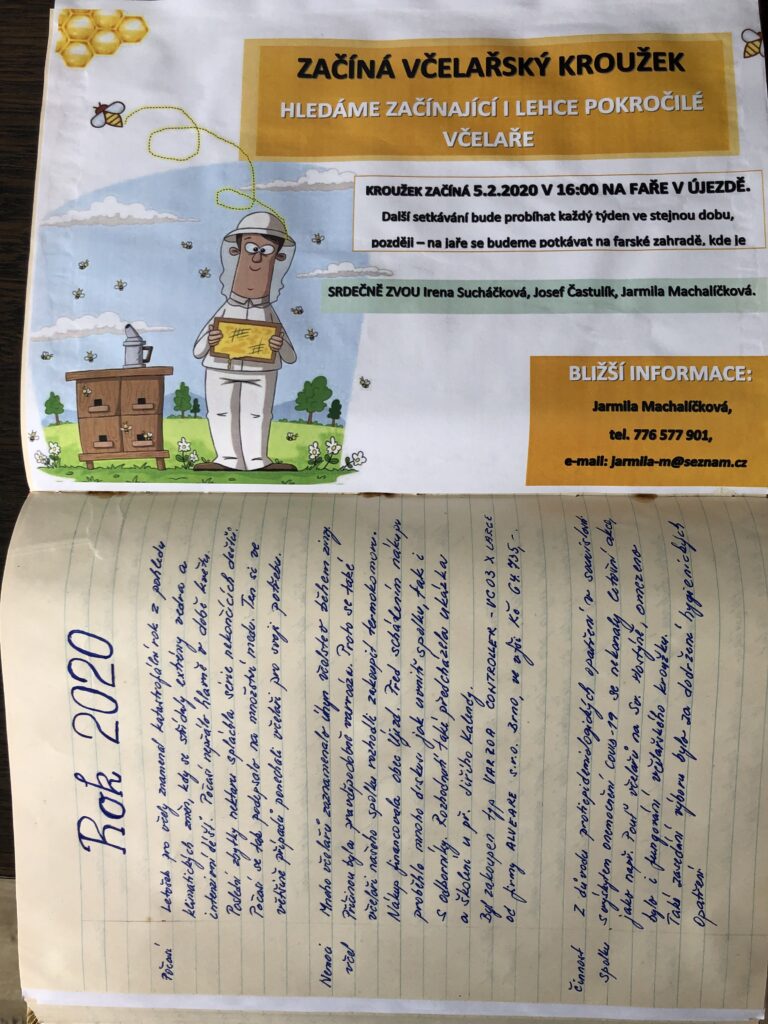 ZAČÍNÁ VČELAŘSKÝ KROUŽEK
HLEDÁME ZAČÍNAJÍCÍ I LEHCE POKROČILÉ
VČELAŘE
KROUŽEK ZAČÍNÁ 5.2.2020 V 16:00 NA FAŘE V ÚJEZDĚ.
Další setkávání bude probíhat každý týden ve stejnou dobu,
později – na jaře se budeme potkávat na farské zahradě, kde je
SRDEČNĚ ZVOU Irena Sucháčková, Josef Častulík, Jarmila Machalíčková.
BLIŽŠÍ INFORMACE:
Jarmila Machalíčková,
tel. 776 577 901,
e-mail: jarmila-m@seznam.cz
Rok 2020
Počasí Letošek pro včely znamenal katastrofální rok z pohledu
klimatických změn, kdy se střídaly extrémy vedra a
intenzivní deště. Počasí nepřálo hlavně v době květu.
Poslední zbytky nektaru spláchla série nekončících dešťů.
Počasí se tak podepsalo na množství medu. Ten si ve
většině případů ponechali včelaři pro svoji potřebu.
Nemoci Mnoho včelařů zaznamenalo úhyn včelstev během zimy.
včel Příčinou byla pravděpodobně varroáza. Proto se také
včelaři našeho spolku rozhodli zakoupit termokomoru.
Nákup financovala obec Újezd. Před schválením nákupu
proběhlo mnoho diskuzí jak uvnitř spolku, tak i
s odborníky. Rozhodnutí také předcházela ukázka
a školení u př. Jiřího Kalendy.
Byl zakoupen typ VARROA CONTROLLER - VC03 X LARGE
od firmy ALVEARE s.r.o. Brno, ve výši Kč 64.735,-.
Činnost Z důvodu protiepidemiologických opatření v souvislosti
spolku s výskytem onemocnění Covid-19 se nekonaly letošní akce,
jako např. Pouť včelařů na Sv. Hostýně, omezeno
bylo i fungování včelařského kroužku.
Také zasedání výboru bylo za dodržení hygienických
opatření.